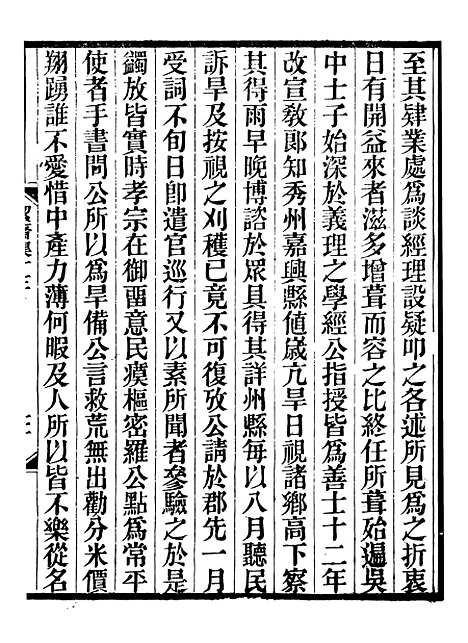 至其肄業處爲談經理設疑叩之各述所見爲之折衷
日有開益來者滋多增葺而容之比終任所葺始遍吳
中士子始深於義理之學經公指授皆爲善士十二年
改宣敎郎知秀州嘉興縣值歲亢旱日視諸鄉高下察
其得雨早晚博諮於眾具得其詳州縣每以八月聽民
訴旱及按視之刈穫已竟不可復攷公請於郡先一月
受詞不旬日卽遣官巡行又以素所聞者參驗之於是
蠲放皆實時孝宗在御畱意民瘼樞密羅公點爲常平
使者手書問公所以爲旱備公言救荒無出勸分米價
翔踴誰不愛惜中產力薄何暇及人所以皆不樂從名
絜齋集十三